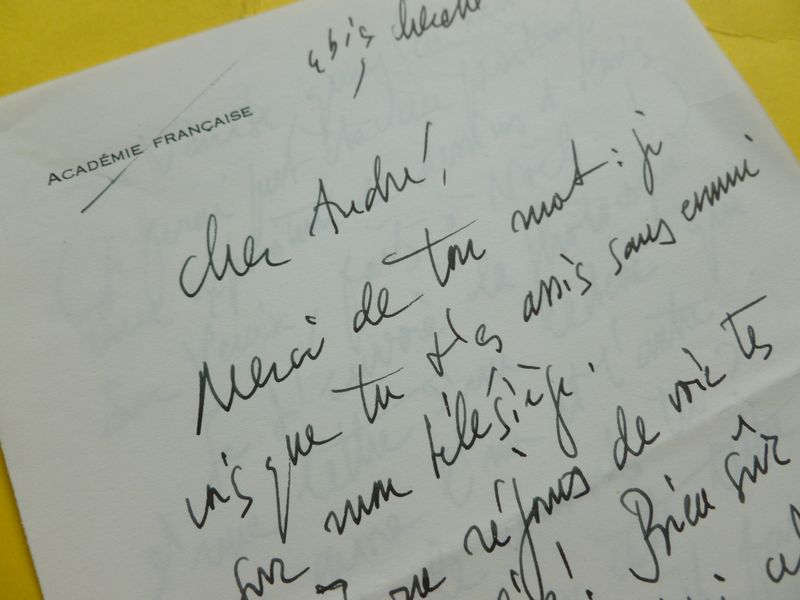 ACADÉMIE FRANÇAISE
Cher André,
Merci de ton mot : je
vois que tu t'es assis sans ennui
sur mon télésiège.
me réjouis de voir tes
Bien sûr